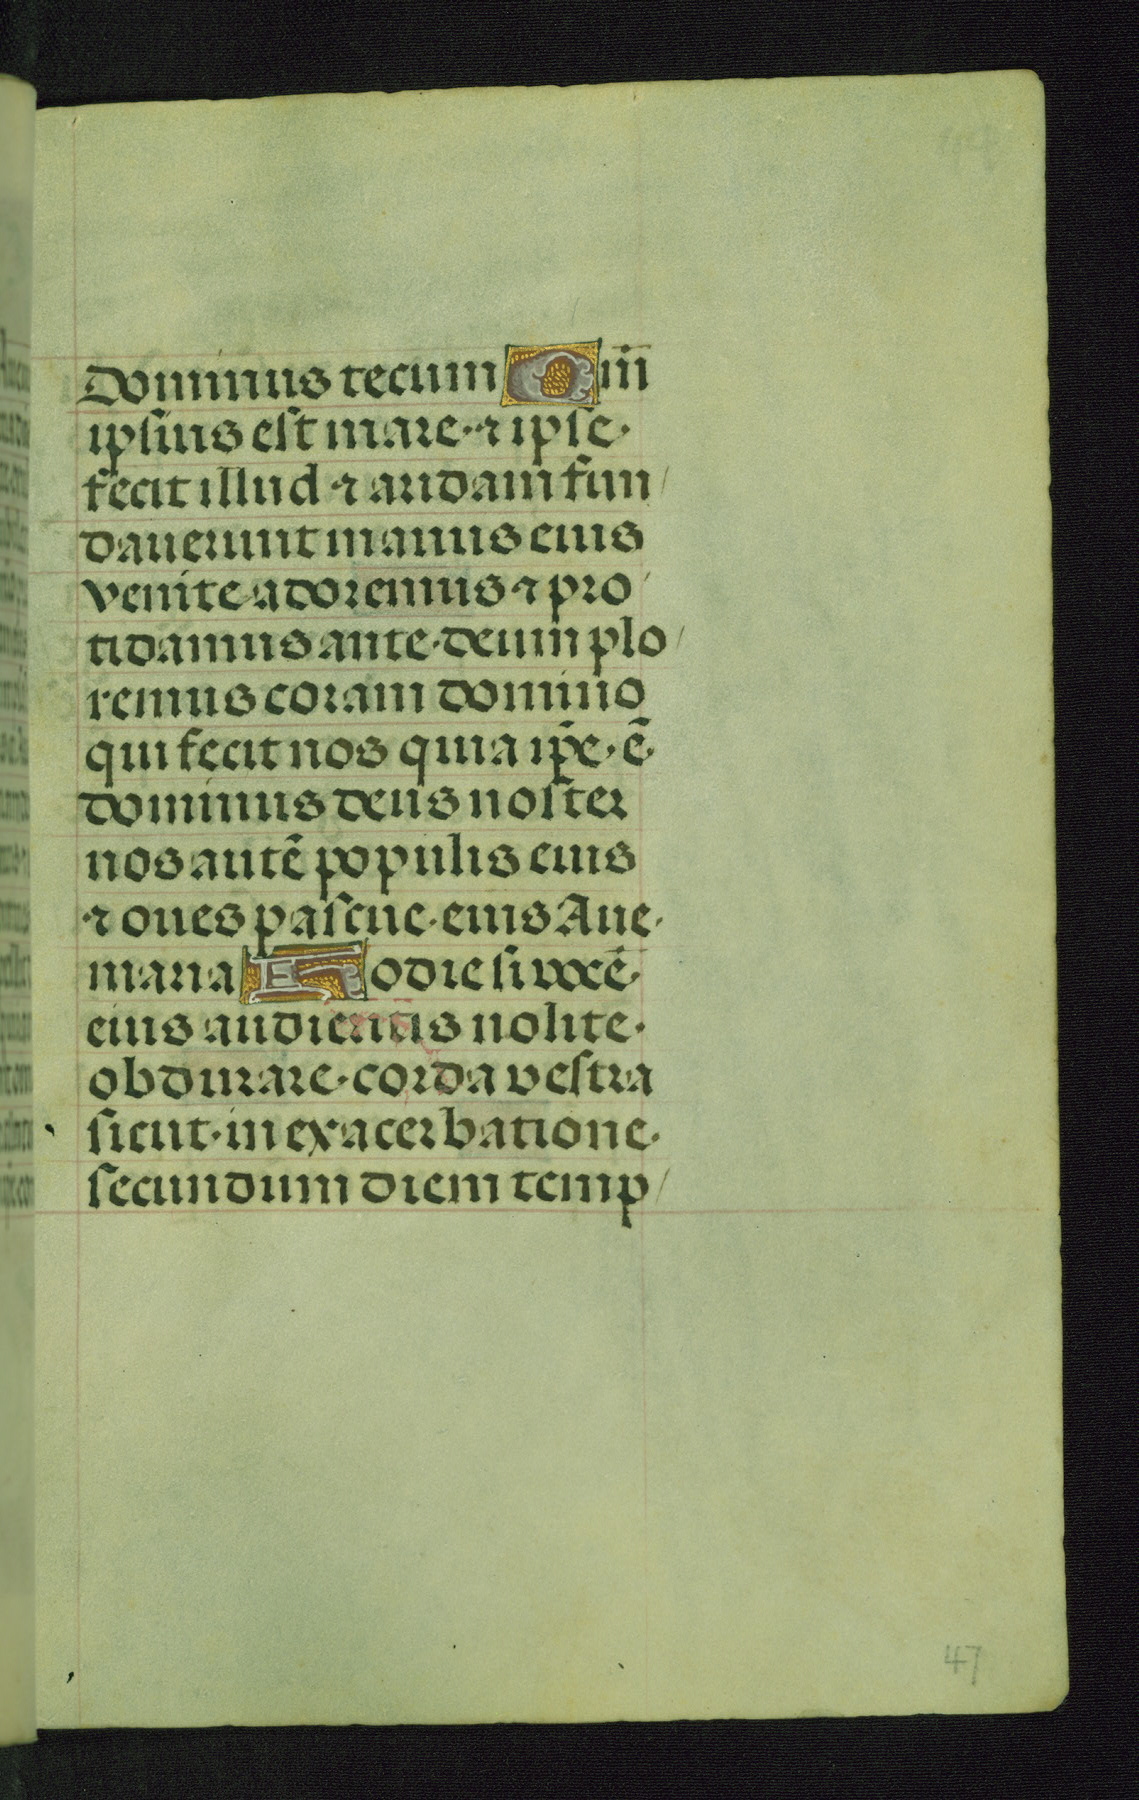 Dominus tecum Qm̄
ipsius est mare · ⁊ ipse ·
fecit illud ⁊ aridam fun/
dauerunt manus eius
venite adoremus ⁊ pro/
cidamus ante · deum plo/
remus coram domino
qui fecit nos quia ip̄e · ē ·
dominus deus noster
nos autē populis eius
⁊ oues pascue · eius Aue ·
maria Hodie si vocē ·
eius audieritis nolite ·
obdurare · corda vestra
sicut · in exacerbatione ·
secundum diem temp/
47